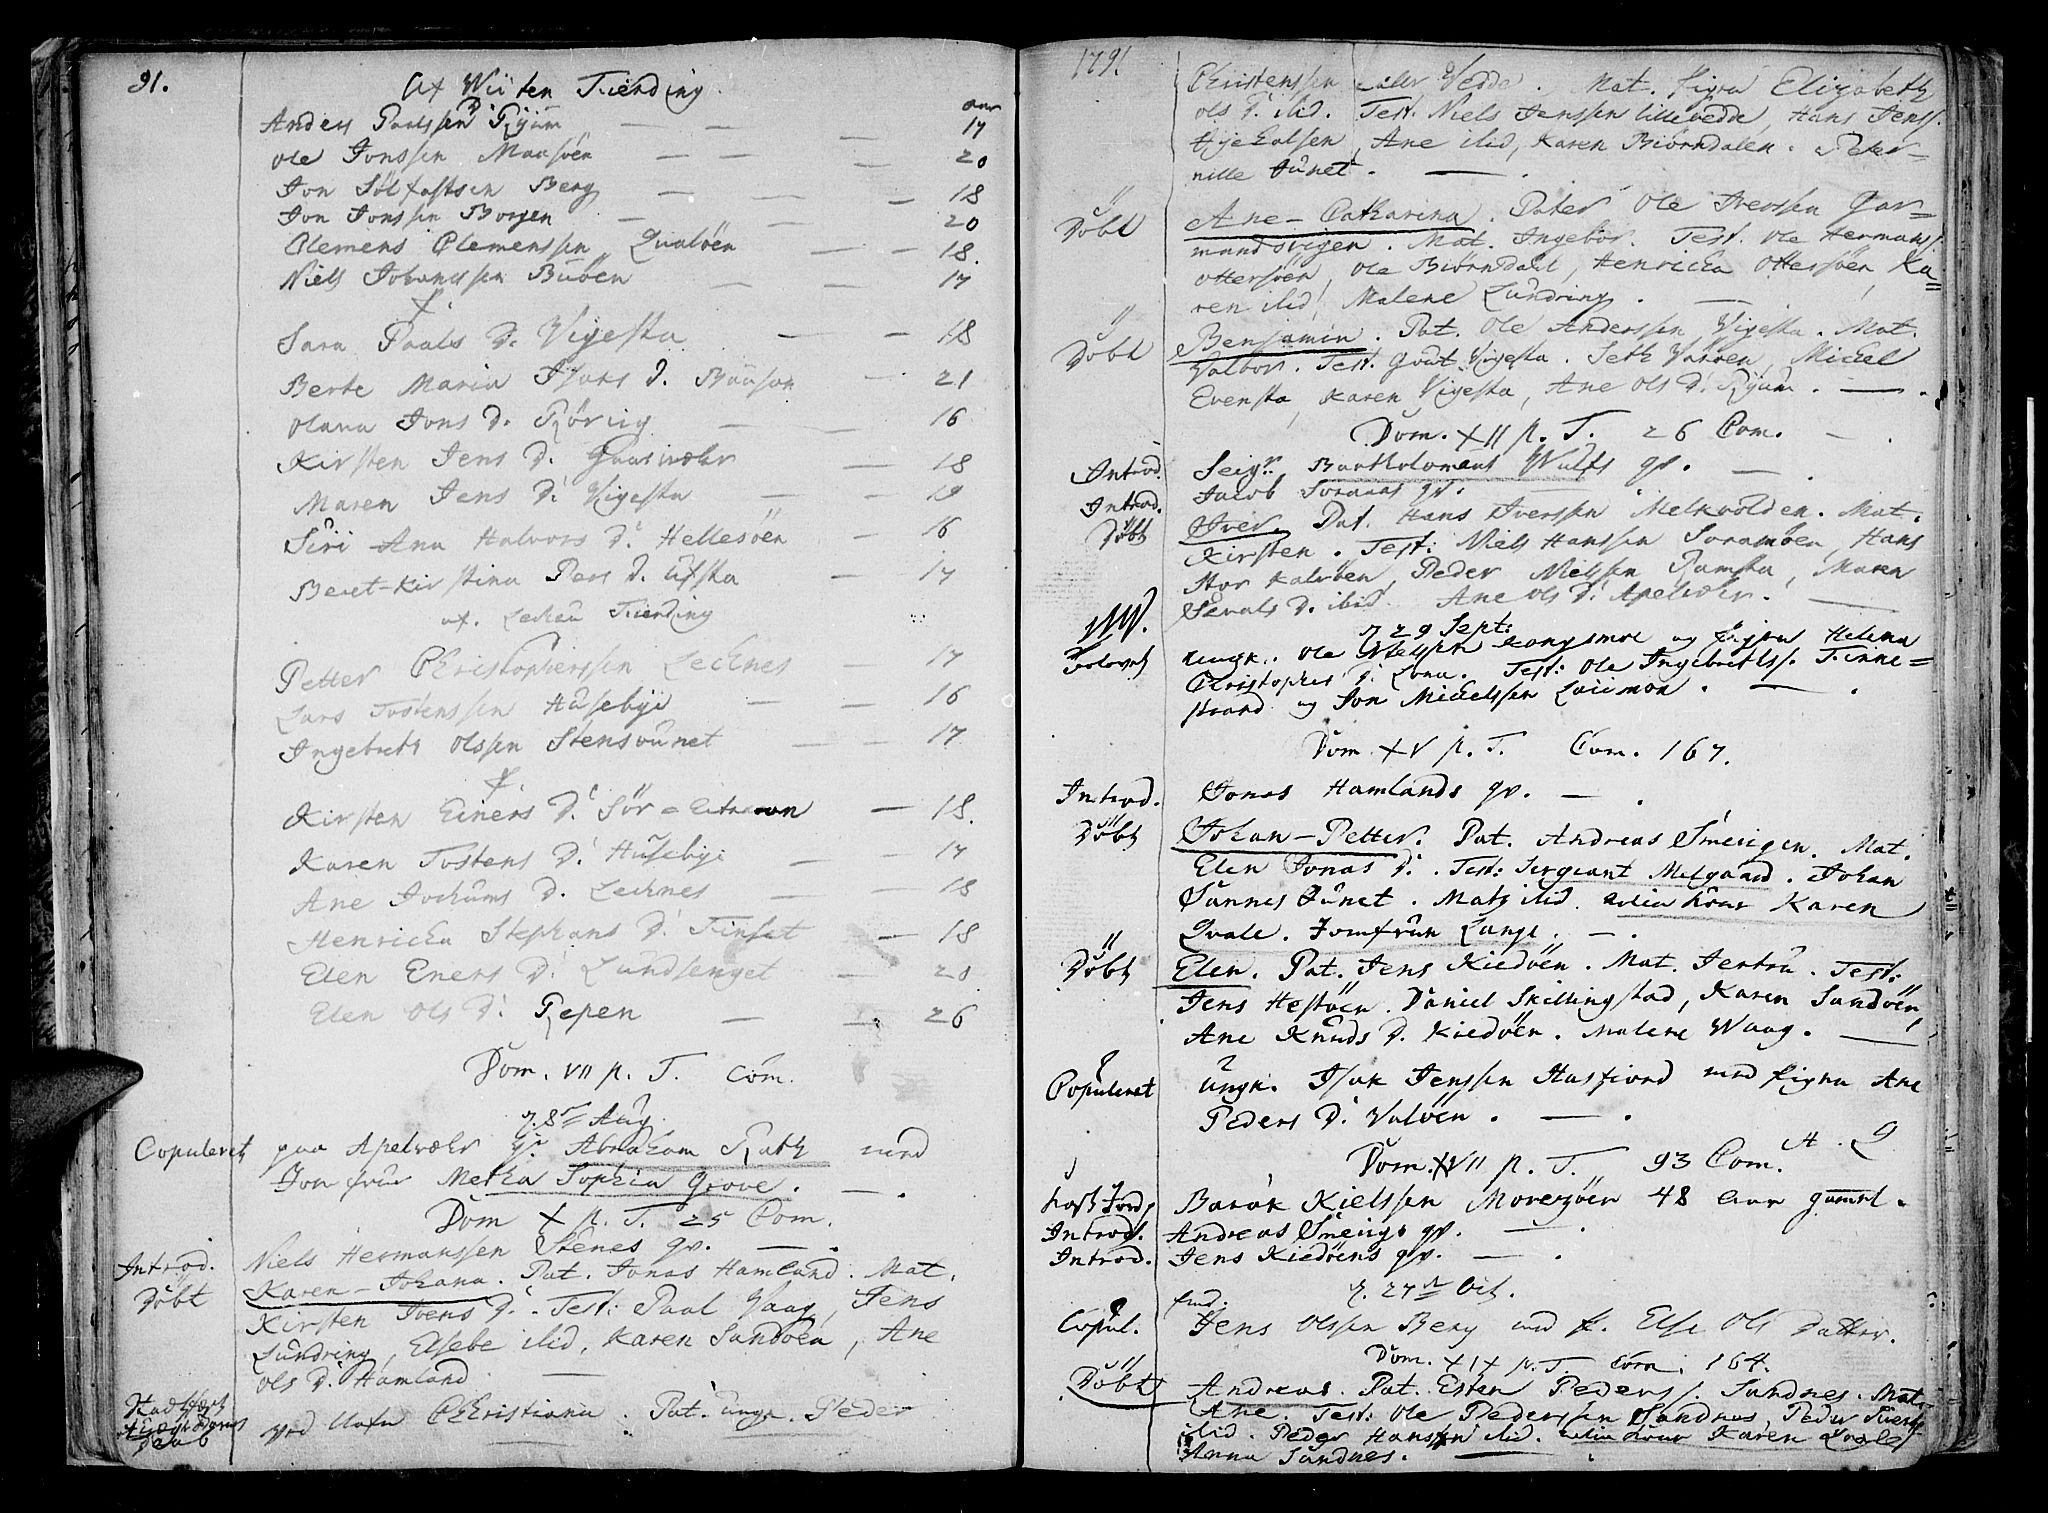 91.
Af Wiiten Fierding.
aar
Anders Paalssen Ryum — — — 17
Ole Jonssen Maasöen — — — 20
Jon Sölfastsen Berg — — — 18
Jon Jonssen Borgen — — 20
Clemens Clemenssen Qualöen — — 18.
Niels Johanssen Buöen — — 17
f.
Sara Paals D. Vigesta — — 18
Berte Maria Isaks D. — 21
Olava Jons D. Rörvig — — 16
Kirsten Jens D. Gaasvæhr — 18
Maren Jens D. Vigesta — — 19
Siri Ana Halvors D. Hellesöen — 16
Beret-Kirstina Pers D. Ufsta — 17
af. Leckou Fierding
Petter Christophersen Lecknes — 17
Lars Tostenssen Husebye — — 16
Ingebreth Olssen Stensvunet — — 17
f.
Kirsten Einers D. Sör — 18.
Karen Tostens D. Husebye — — 17
Ane Jochums D. Lecknes — — 18
Henricka Stephans D. Finset — 18
Elen Eners D. Lundsenget — 20
Elen Ols D. Repen — — 26
Dom. VII p. T. Com.
d. 8de Aug.
Copuleret paa Apelvæhr Hr. Abraham Rath med
Jomfru Metha Sophia Grove. — .
Dom X p. T. 25 Com.
Introd. Niels Hermanssen Stenes qv. — .
Döbt Karen-Johana. Pat. Jonas Hamland. Mat.
Kirsten Ivens D. Test: Paal Vaag, Jens
Lundring, Elsebe ibid, Karen Sandöen, Ane
Ols D. Hamland —
Stadfæst
Daab
ved Nafn Christiana. Pat. ungk. Peder
1791.
Christenssen Lille Vedde. Mat. Pigen Elizabeth
Ols D. ibid. Test. Niels Jenssen lillevedde, Hans Jens.
Ane ibid, Karen Biörndalen. Peter-
nille Aunet. — .
Döbt Ane-Catharina. Pater Ole Iverssen Gar-
mandsvigen. Mat. Ingebor. Test. Ole Hermans.
Ottersöen, Ole Biörndahl, Henricka Ottersöen, Ka=
ren ibid, Malene Lundring. —
Döbt Benjamin. Pat. Ole Anderssen Vigesta. Mat.
Valbor. Test. Gout Vigesta. Seth Varöen, Mickel
Evensta, Karen Vigesta, Ane Ols D. Ryum. — .
Dom. XII p. T. 26 Com. —
Introd. Seigr. Bartholomeus Wulfs qv. —
Introd. Jacob Soraaas qv.
Döbt Iver. Pat. Hans Iverssen Melkvolden. Mat.
Kirsten. Test: Niels Hanssen Soramöen, Hans
Stor Kalvöen, Peder Nielssen Ramsta, Maren
Sevals D. ibid. Ane Ols D. Apelvæhr. —
NB. d. 29 Sept:
Trolovet ungk. Ole Kongsmoe og Pigen Helena
Christophers D. Lona. Test: Ole Ingebretss. Finne=
strand og Jon Mickelssen Laiimon. — .
Dom XV p. T. Com. 167.
Introd. Jonas Hamlands qv. — .
Döbt Johan-Petter. Pat. Andreas Smevigen. Mat.
Elen Jonas D. Test: Sergeant Melgaard. Johan
Sannes Aunet. Mats ibid. Karen
Qvale. Jomfrue Lange. — .
Döbt Elen. Pat. Jens Kiedöen. Mat. Jertru. Test:
Jens Hestöen. Daniel Skillingstad, Karen Sandöen,
Ane Knuds D. Kiedöen. Malene Waag. —
Copuleret ungk. Isak Jenssen Husfiord med Pigen Ane
Peders D. Valöen. — .
Dom. XVII p. T. 93 Com.
Kast Jord p. Barak Kielssen Morersöen 48 aar gamel.
Introd. Andreas Smevigs qv. — .
Introd. Jens Kiedöens qv. — .
d. 27de Oct.
Copul. Jens Olssen Berg med p. Else Ols Datter.
Dom. XIX p. T. Com. 164.
Döbt Andreas. Pat. Esten Pederss. Sandnes. Mat.
Ane. Test: Ole Pederssen Sandnes, Peder
ibid. Peder Hanssen ibid. Karen
Anna Sandnes. — .